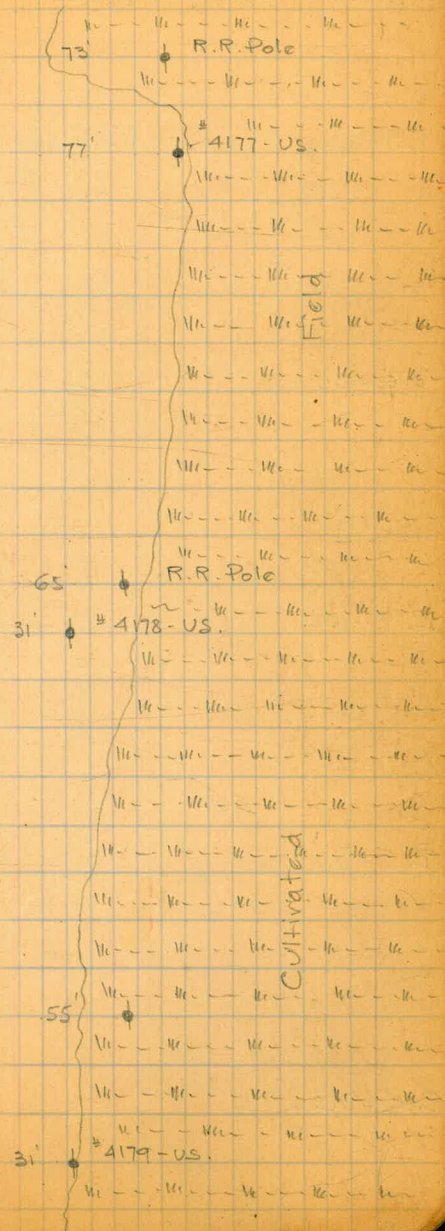 73' R.R. Pole
77' # 4177-US.
Field
65' R.R. Pole
31' # 4178-US.
Cultivated
55'
31' # 4179-US.